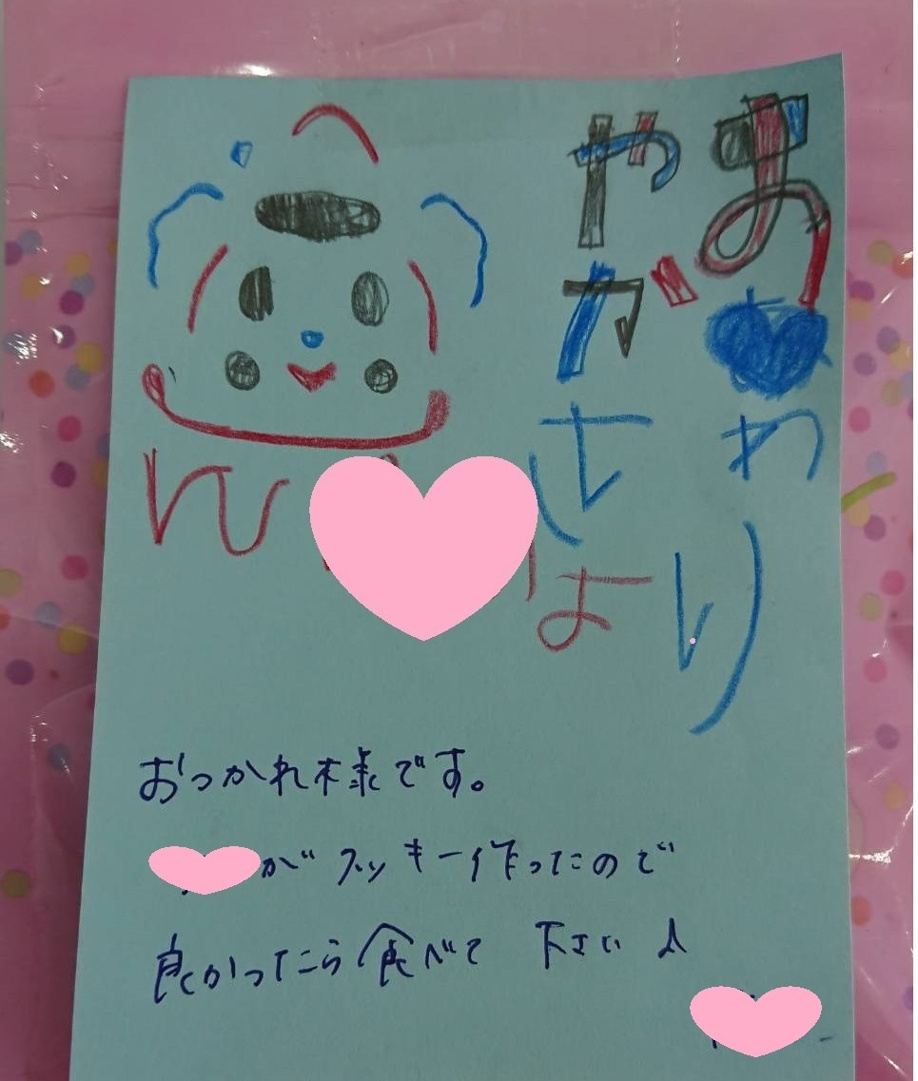 わり
やが
さ
よ
ん
おつかれ様です。
がクッキー作ったので
良かったら食べて 下さい♪